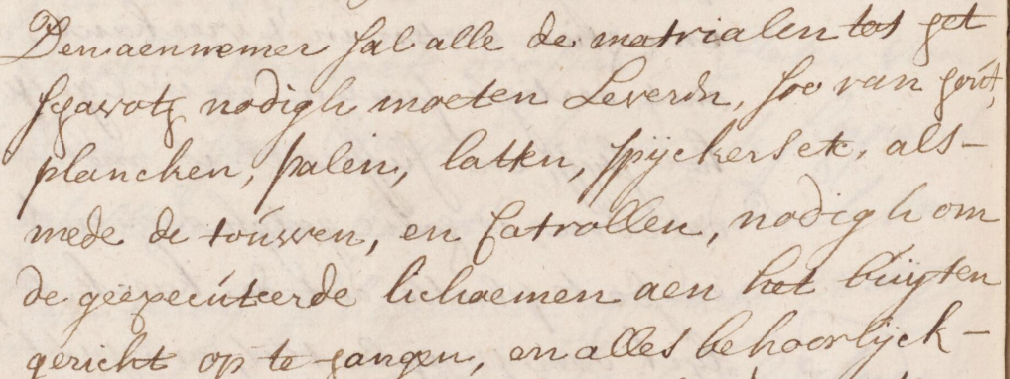 Den aennemer sal alle de matrialen tot het
schavotz nodigh moeten Leveren, soo van hout,
plancken, palen, latten, spÿckers etc, als-
mede de touwen, en Catrollen, nodigh om
de geëxecúteerde lichaemen aen het búÿten
gericht op te hangen, en alles behoorlÿck-